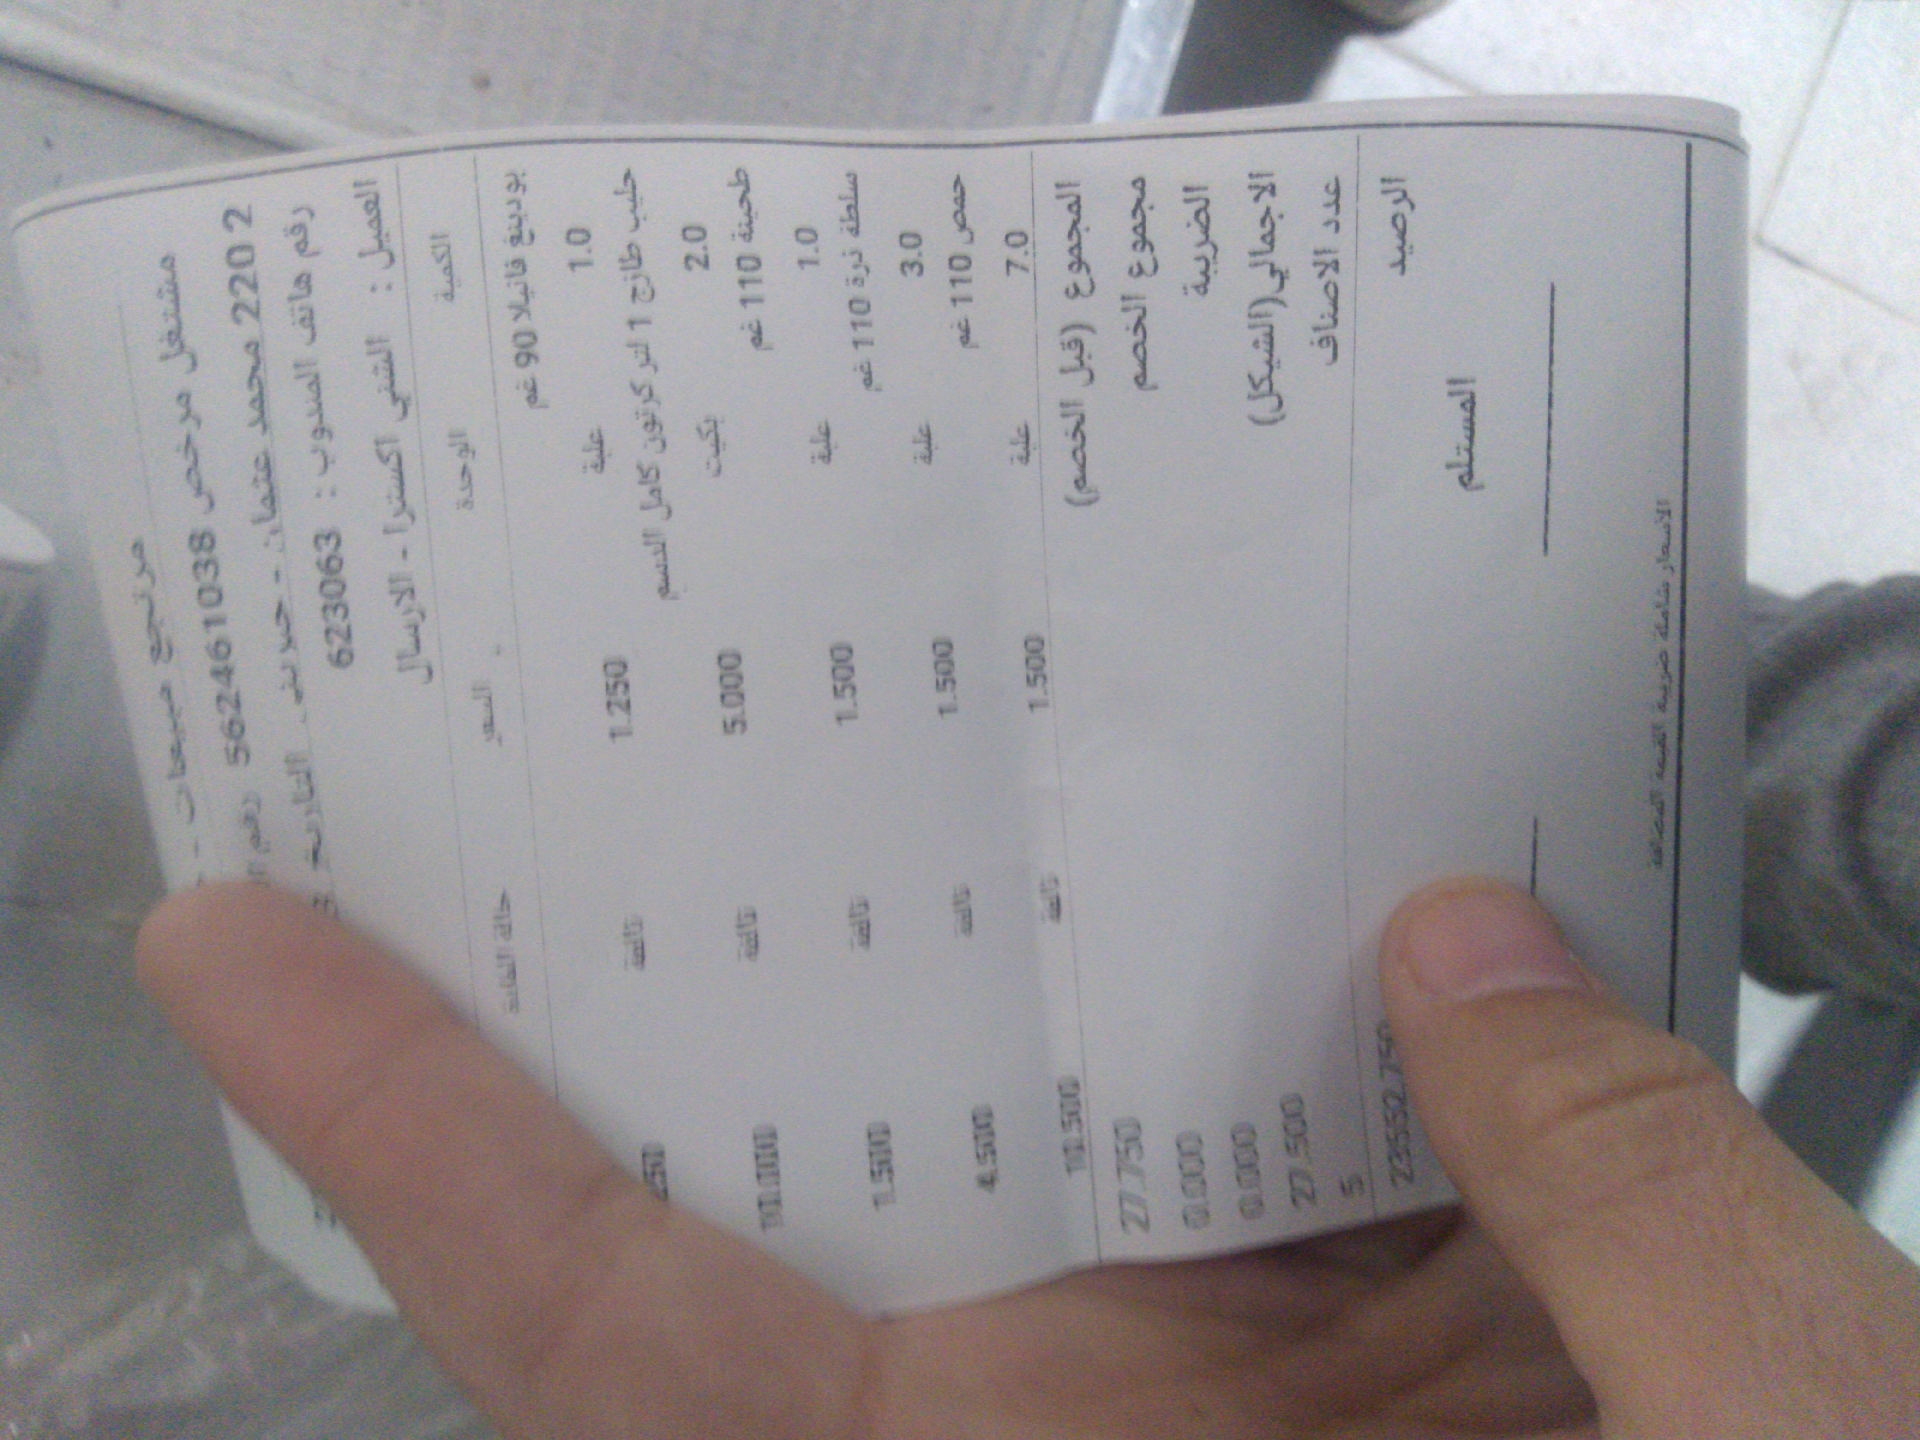 مرتجع مبيعات -
مشتغل مرخص 562461038 رقم
2 220 محمد عثمان -
رقم هاتف المندوب : 6230063
العميل : الشني اكسترا - الارسال
الكمية الوحدة السعر حالة المادة
بودينغ فانيلا 90 غم
1.0 علبة 1.250 تالفة 250
حليب طازج 1 لتر كرتون كامل الدسم
2.0 بكيت 5.000 تالفة 10.000
طحينة 110 غم
1.0 علبة 1.500 تالفة 1.500
سلطة ذرة 110 غم
3.0 علبة 1.500 تالفة 4.500
حمص 110 غم
7.0 علبة 1.500 تالفة 10.500
المجموع (قبل الخصم) 27.750
مجموع الخصم 0.000
الضريبة 0.000
الاجمالي(الشيكل) 27.500
عدد الاصناف 5
الرصيد 23552.750
المستلم
الاسعار شاملة ضريبة القيمة المضافة